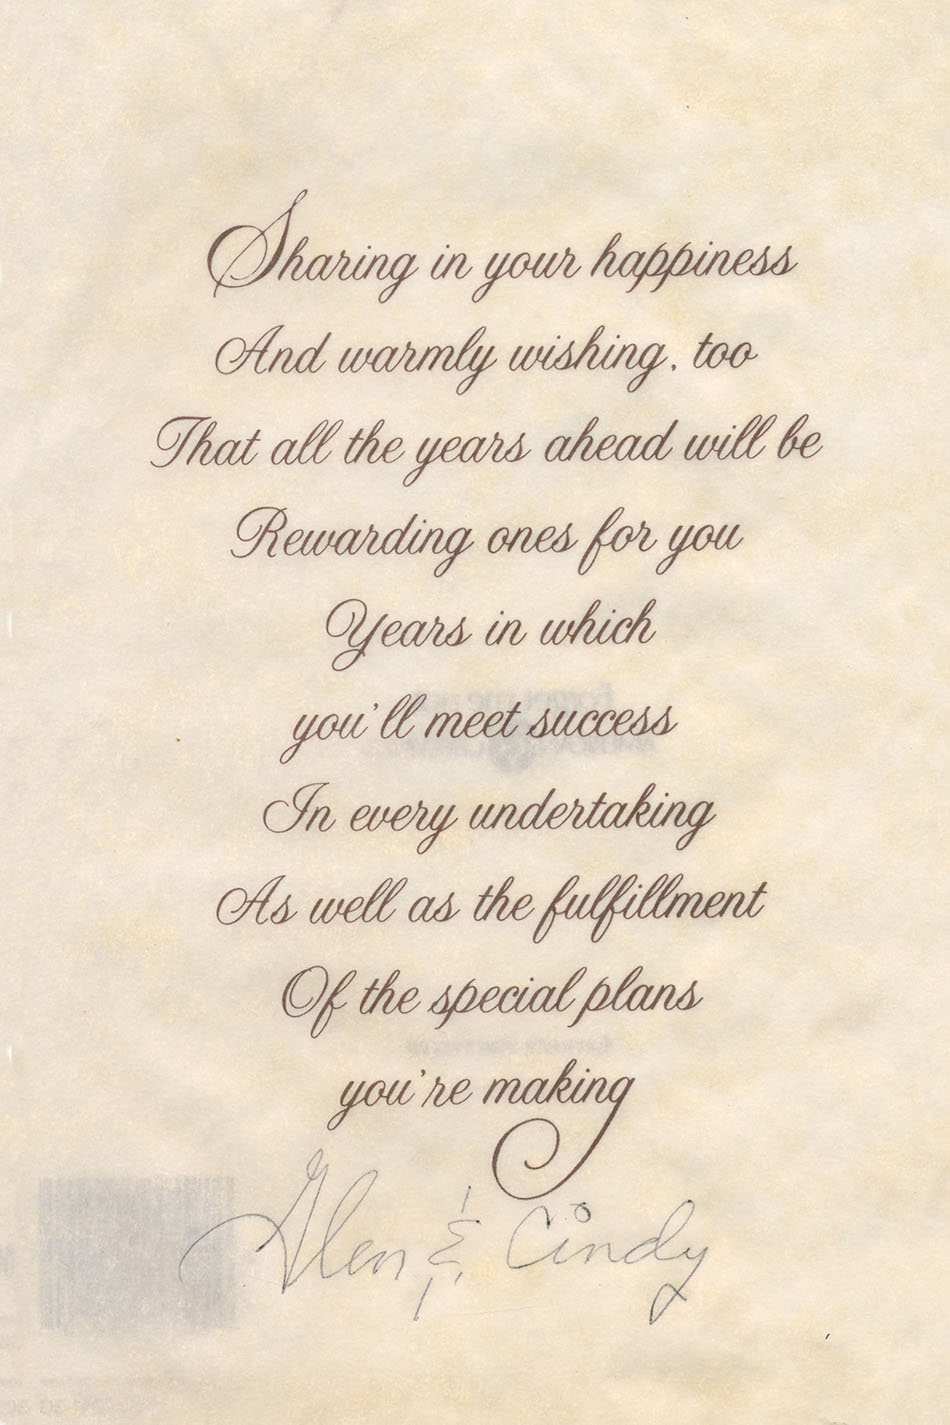 Sharing in your happiness
And warmly wishing, too
That all the years ahead will be
Rewarding ones for you
Years in which
you'll meet success
In every undertaking
As well as the fulfillment
Of the special plans
you're making
Glen & Cindy